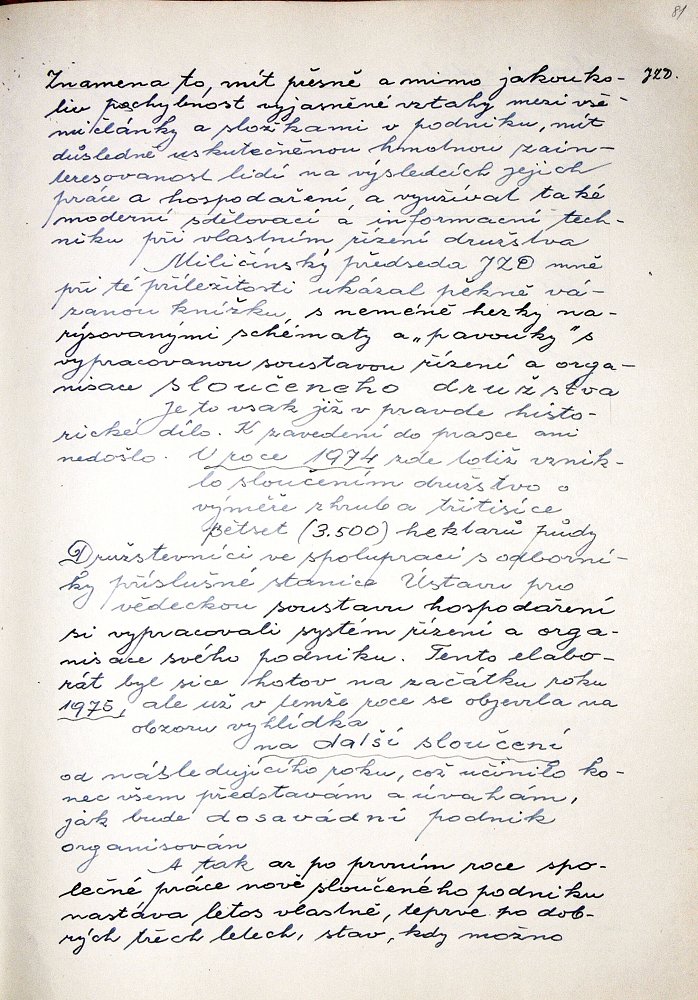 81
Znamena to, mít přesně a mimo jakouko- JZD.
liv pochybnost vyjasněné vztahy mezi vše-
mi články a složkami v podniku, mít
důsledně uskutečněnou hmotnou zain-
teresovanost lidí na výsledcích jejich
práce a hospodaření, a využíval také
moderní sdělovací a informacní tech-
niku při vlastním řízení družstva
Miličínský předseda JZD mně
při té příležitosti ukázal pěkně vá-
zanou knížku, s neméně hezky na-
rýsovanými schématy a „pavouky" s
vypracovanou soustavou řízení a orga-
nisace sloučeneho družstva
Je to však již v pravde histo-
rické dílo. K zavedení do praxe ani
nedošlo. V roce 1974 zde totiž vznik-
lo sloučením družstvo o
výměře zhruba třitisíce
pětset (3.500) hektarů půdy
Družstevníci ve spolupraci s odborní-
ky příslušné stanice Ústavu pro
vědeckou soustavu hospodaření
si vypracovali systém řízení a orga-
nisace svého podniku. Tento elabo-
rát byl sice hotov na začátku roku
1975, ale už v temže roce se objevila na
obzoru vyhlídka
na další sloučení
od následujícího roku, což učinilo ko-
nec všem představám a úvahám,
jak bude dosavádní podnik
organisován
A tak až po prvním roce spo-
lečné práce nově sloučeného podniku
nastáva letos vlastně, teprve po dob-
rých třech letech, stav, kdy možno